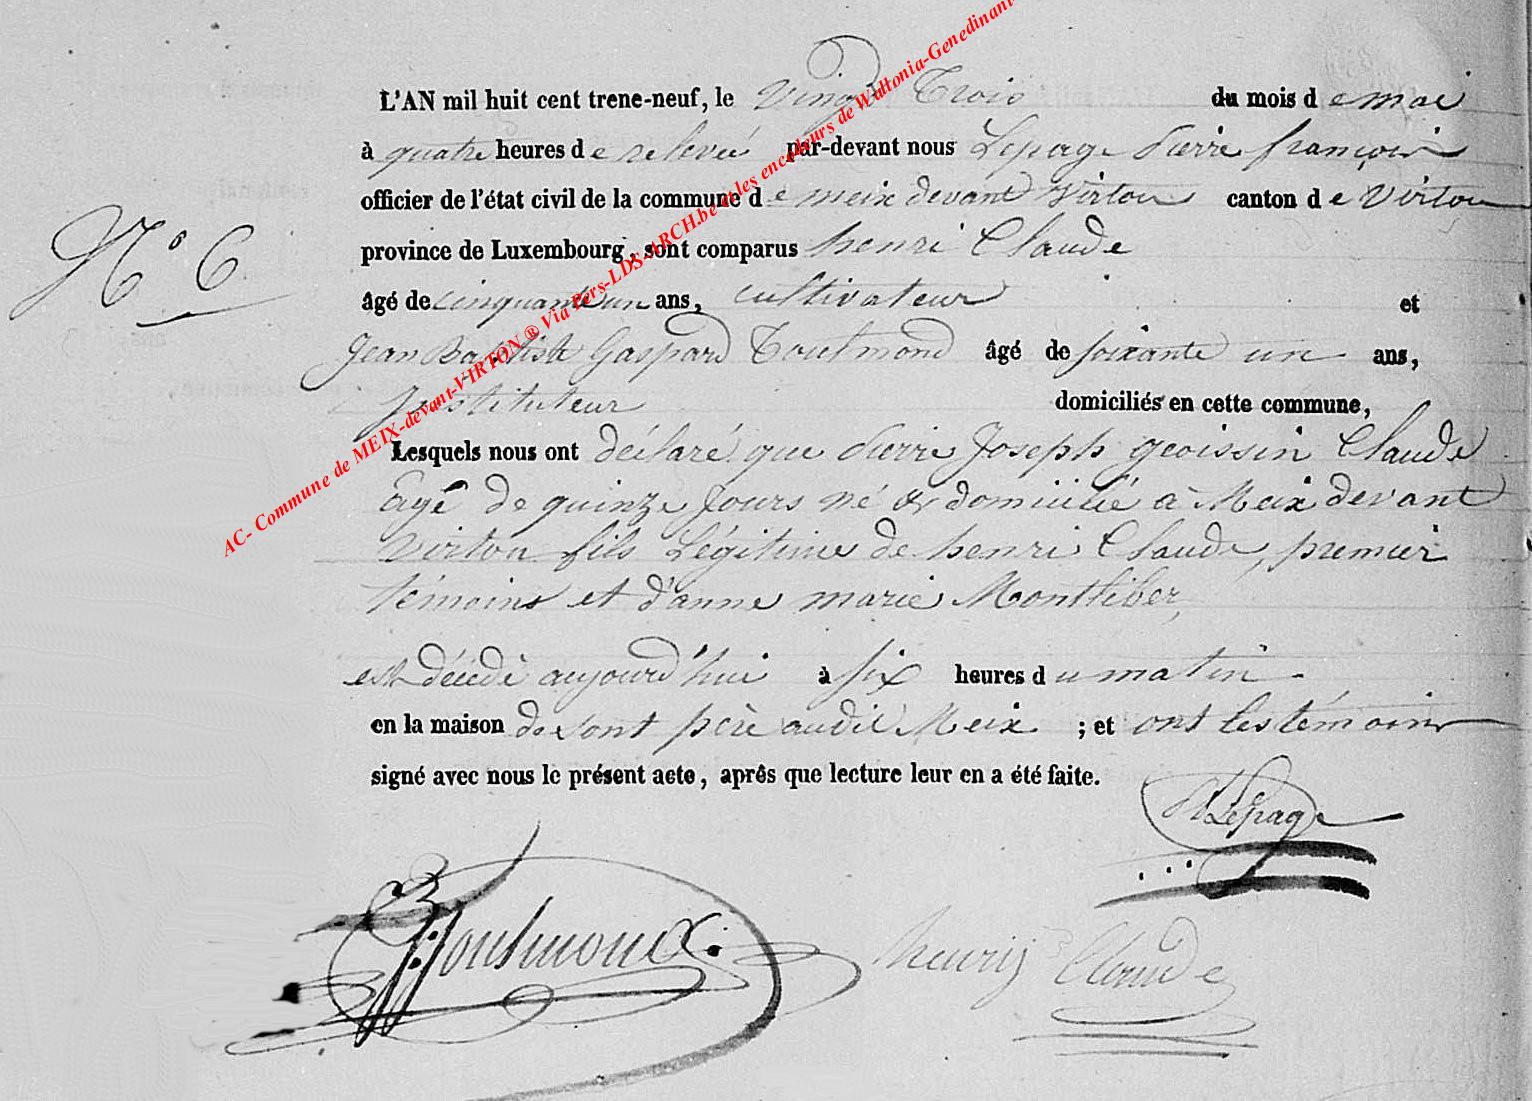 L'AN mil huit cent trene-neuf, le Vingt Trois du mois de mai
à quatre heures de relevé par-devant nous Lepage Pierre françois
officier de l'état civil de la commune de meix devant Virton canton de Virton
N° 6
province de Luxembourg, sont comparus henri Claude
âgé de cinquante un ans, cultivateur et
Jean Baptiste Gaspard Toulmond âgé de soixante un ans,
Jnstituteur domiciliés en cette commune,
Lesquels nous ont déclaré que Pierre Joseph geoissin Claude
âgé de quinze Jours né & domicilié à Meix devant
Virton fils Légitime de henri Claude, premier
témoins et d'anne marie Montliber,
est décédé aujourd'hui à six heures du matin
en la maison de sont père audit Meix ; et ont les témoins
signé avec nous le présent acte, après que lecture leur en a été faite.
Lepage
Toulmond henry Claude
AC- Commune de MEIX-devant-VIRTON ® Via Pers-LDS-ARCH.be et les encodeurs de Waltonia-Genedinant